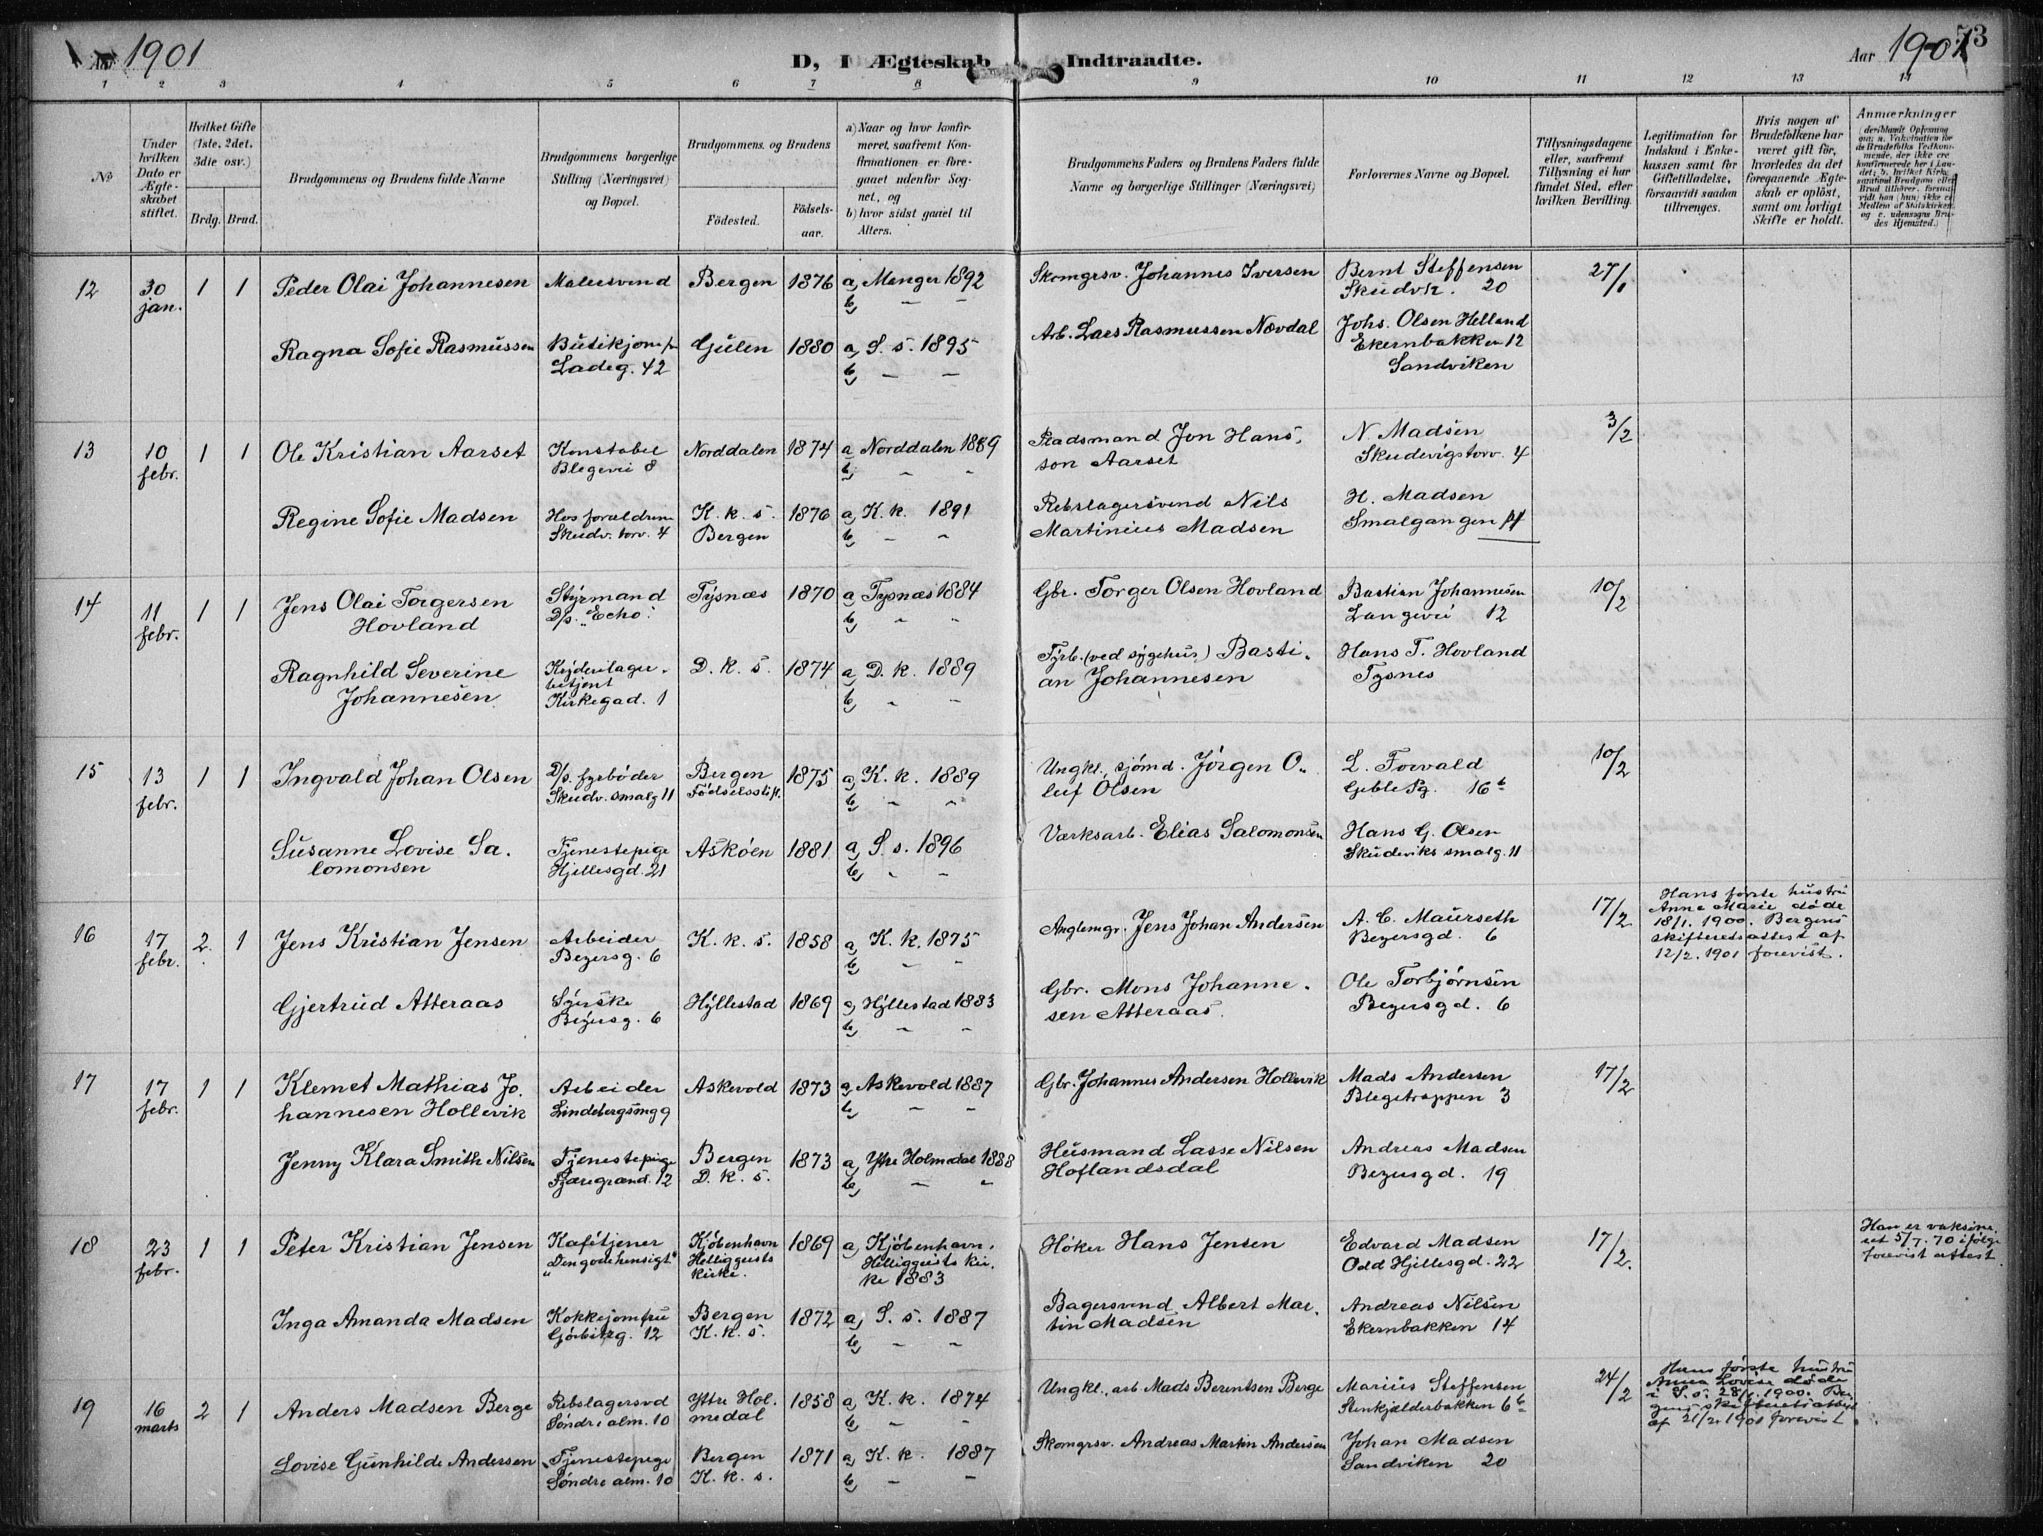 Aar 1901
D, I Ægteskab Indtraadte.
Aar 1901
53
1 2 3 4 5 6 7 8 9 10 11 12 13 14
№
Under hvilken Dato er Ægteskabet stiftet.
Hvilket Gifte (1ste, 2det, 3die osv.)
Brdg. Brud.
Brudgommens og Brudens fulde Navne
Brudgommens borgerlige Stilling (Næringsvei) og Bopæl.
Brudgommens og Brudens
Födested.
Födselsaar.
a) Naar og hvor konfirmeret, saafremt Konfirmationen er foregaaet udenfor Sognet, og
b) hvor sidst gaaet til Alters.
Brudgommens Faders og Brudens Faders fulde Navne og borgerlige Stillinger (Næringsvei)
Forlovernes Navne og Bopæl.
Tillysningsdagene eller, saafremt Tillysning ei har fundet Sted, efter hvilken Bevilling.
Legitimation for Indskud i Enkekassen samt for Giftetilladelse, forsaavidt saadan tiltrænges.
Hvis nogen af Brudefolkene har været gift før, hvorledes da det foregaaende Ægteskab er opløst, samt om lovligt Skifte er holdt.
Anmærkninger
12
30 jan.
1 1
Peder Olai Johannesen
Malersvend
Bergen
1876
a) Manger 1892
b) " "
Skomgrsv. Johannes Iversen
Bernt Steffensen
Skudvk. 20
27/1
Ragna Sofie Rasmussen
Butikjomfr
Ladeg. 42
Gulen
1880
a) S. s. 1895
b) " "
Arb. Lars Rasmussen Nævdal
Johs. Olsen Helland
Ekernbakken 12
Sandviken
13
10 febr.
1 1
Ole Kristian Aarset
Konstabel
Blegevei 8
Norddalen
1874
a) Norddalen 1889
b) " "
Pladsmand Jon Hans-
son Aarset
N. Madsen
Skudevigstorv. 4
3/2
Regine Sofie Madsen
Hos forældrene
Skudv. torv. 4
K. k. s.
Bergen
1876
a) K. k. 1891
b) " "
Rebslagersvend Nils
Martinius Madsen
H. Madsen
Smalgangen 14
14
11 febr.
1 1
Jens Olai Torgersen
Hovland
Styrmand
D/s. "Echo".
Tysnæs
1870
a) Tysnæs 1884
b) " "
Gbr. Torger Olsen Hovland
Bastian Johannesen
Langevei 12
10/2
Ragnhild Severine
Johannesen
betjent
Kirkegad. 1
D. k. s.
1874
a) D. k. 1889
b) " "
Fyrb. (ved sygehus.) Basti-
an Johannesen
Hans T. Hovland
Tysnes
15
13 febr.
1 1
Ingvald Johan Olsen
D/s. fyrbøder
Skudv. smalg 11
Bergen
Fødselsstift.
1875
a) K. k. 1889
b) " "
Ungkl., sjømd. Jörgen O-
luf Olsen
L. Forvald
Geble Pg. 16 b
10/2
Susanne Lovise Sa-
lomonsen
Tjenestepige
Hjellesgd. 21
Askøen
1881
a) S. s. 1896
b) " "
Værksarb. Elias Salomonsen
Hans G. Olsen
Skudeviks smalg. 11
16
17 febr.
2 1
Jens Kristian Jensen
Arbeider
Beyersg. 6
K. k. s.
1858
a) K. k. 1875
b) " "
Jens Johan Andersen
A. C. Maurseth
Beyersgd. 6
17/2
Hans første hustru
Anne Marie døde
18/1. 1900. Bergens
skifteretsattest af
12/2. 1901 forevist.
Gjertrud Atteraas
Syerske
Beyersg. 6
Hyllestad
1869
a) Hyllestad 1883
b) " "
Gbr. Mons Johanne-
sen Atteraas.
Ole Torbjørnsen
Beyersgd. 6
17
17 febr.
1 1
Klemet Mathias Jo-
hannesen Hollevik
Arbeider
Lindebergsmg 9
Askevold
1873
a) Askevold 1887
b) " "
Gbr. Johannes Andersen Hollevik
Mads Andersen
Blegetrappen 3
17/2
Jenny Klara Smith Nilsen
Tjenestepige
Fjæregrænd. 12
Bergen
D. k. s.
1873
a) Ytre Holmedal 1888
b) " "
Husmand Lasse Nilsen
Hoflandsdal
Andreas Madsen
Beyersgd. 19
18
23 febr.
1 1
Peter Kristian Jensen
Kafétjener
"Den gode hensigt"
Kjøbenhavn
Helliggeists kirke.
1869
a) Kjøbenhavn,
Helliggeists kir-
ke 1883
Høker Hans Jensen
Edvard Madsen
Odd Hjellesgd. 22
17/2.
Han er vaksine-
ret 5/7. 70 ifølge
forevist attest
Inga Amanda Madsen
Kokkejomfru
Gjørbitzg. 12
Bergen
K. k. s.
1872
a) S. s. 1887
b) " "
Bagersvend Albert Mar-
tin Madsen
Andreas Nilsen
Ekernbakken 14
19
16 marts
2 1
Anders Madsen Berge
Rebslagersvd
Søndre alm. 10
Ytre Hol-
medal
1858
a) K. k. 1874
b) " "
Ungkl., arb Mads Berentsen Berge
Marius Steffensen
Stenkjælderbakken 6 b
24/2
Hans første hustru
Anna Lovise døde
i S. s. 28/1. 1900. Ber-
gens skifteretsattest
af 21/2. 1901 forevist.
Lovise Gunhilde Andersen
Tjenestepige
Søndre alm. 10
Bergen
K. k. s.
1871
a) K. k. 1887
b) " "
Skomgrsv. Andreas Martin Andersen
Johan Madsen
Sandviken 20